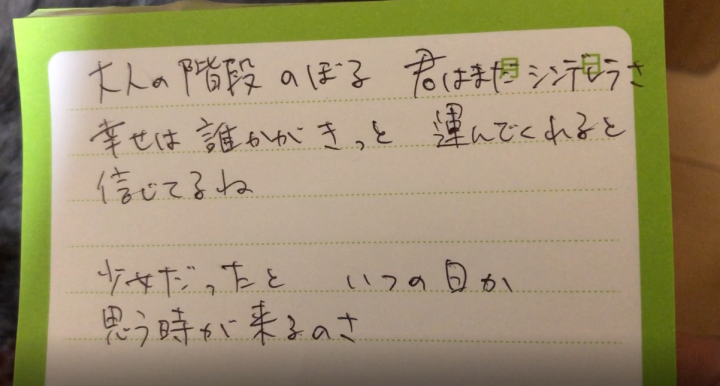 大人の階段 のぼる 君はまだ シンデレラさ
幸せは 誰かがきっと 運んでくれると
信じてるね
少女だったと いつの日か
思う時が来るのさ